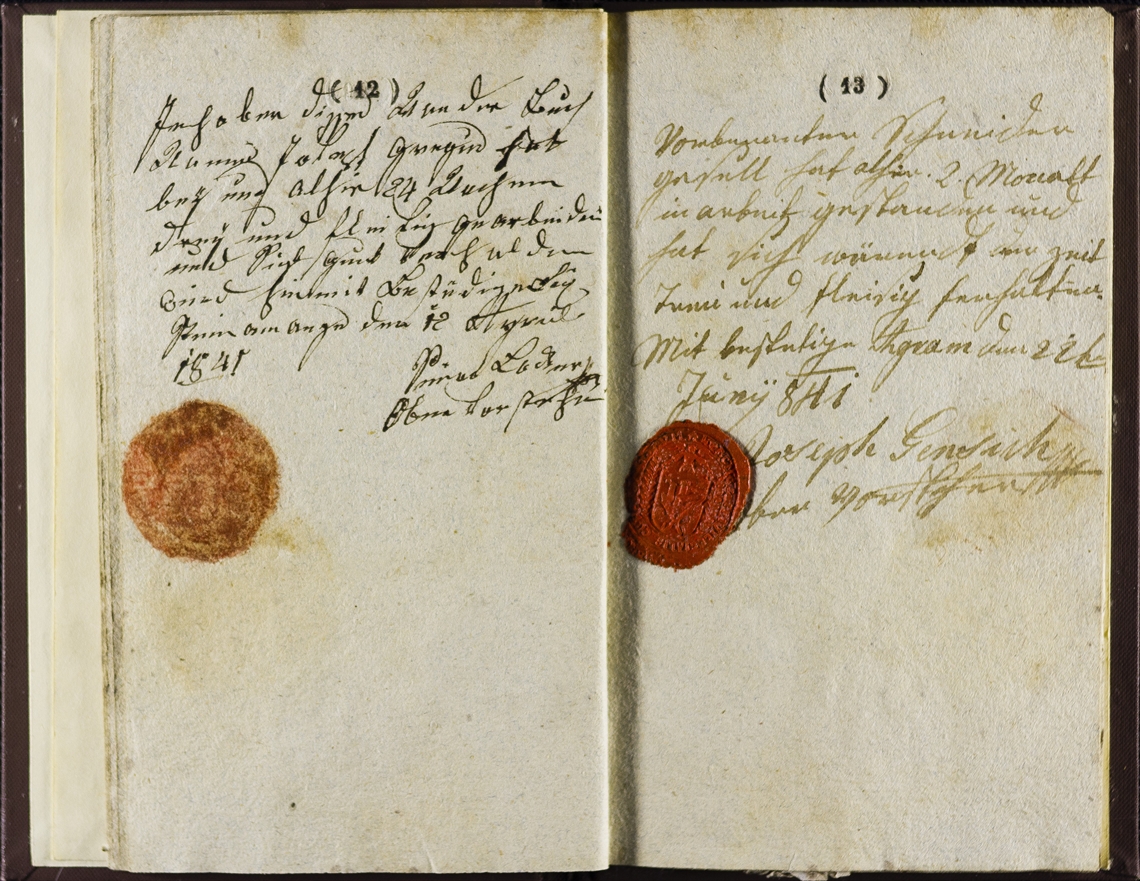 ( 12 )
Inhaber dises Wander Buch
Namens Joseph Gregud hat
bey uns alhir 24 Wochen
Drey und fleisig gearbeiden
und Sich gut verhalden
Wird hiermit Bestädiget
Stein am angr den 12 Apprill
1841
Ober Vorsteher
( 13 )
Vorbenanter Schneider
gesell hat alhier. 2. Monath
in arbeit gestanden und
hat sich wärend der zeit
Treu und fleisig ferhalten.
Mit bestetige Agram den 22te
Juny 841
Joseph Gensich
ober Vorsteher